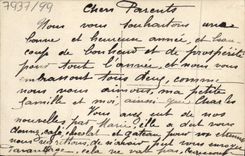 7937/99
Chers Parents
Nous vous souhaitons une
bonne et heureuse année, et beau
coup de bonheur et de prospérité
pour tout l'année et nous vous
embrassont tous deux, comme
nous nous aimons, ma petite
famille et moi, ainsi que Charles
Vous avez eut de nos
nouvelles par Marie, elle a dut vous
donner, café chocolat et gateau, pour vos étrennes
nous de n'avoir put vous envoyer
cela ne valait pas